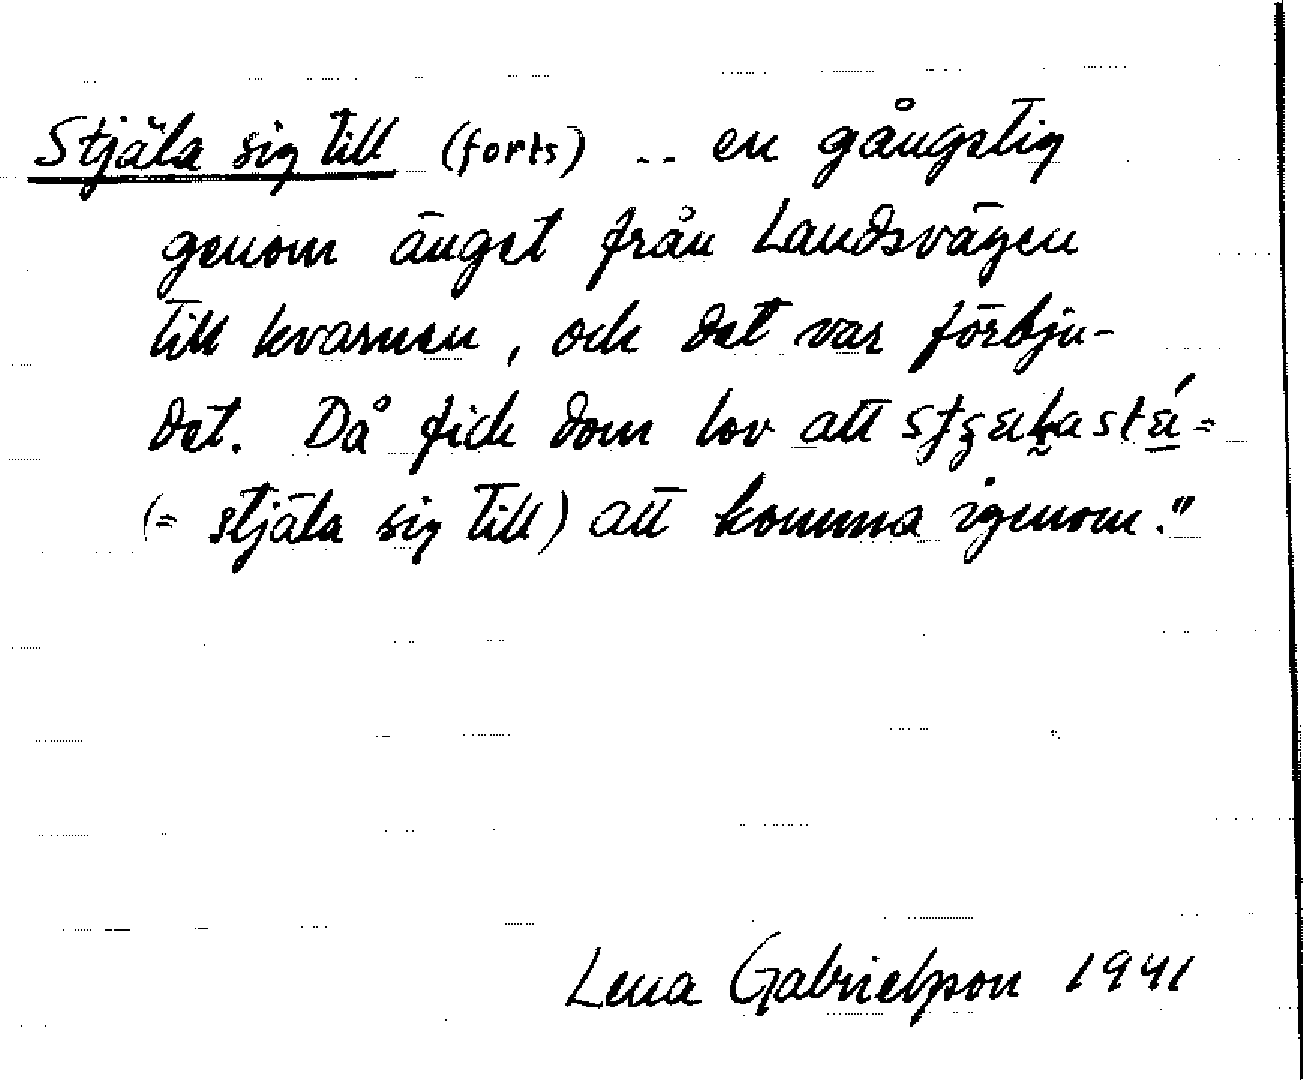 Stjäla sig till (forts) .. en gångstig
genom änget från Landsvägen
till kvarnen, och det var förbju-
det. Då fick dom lov att
(= stjäla sig till) att komma igenom."
Lena Gabrielsson 1941